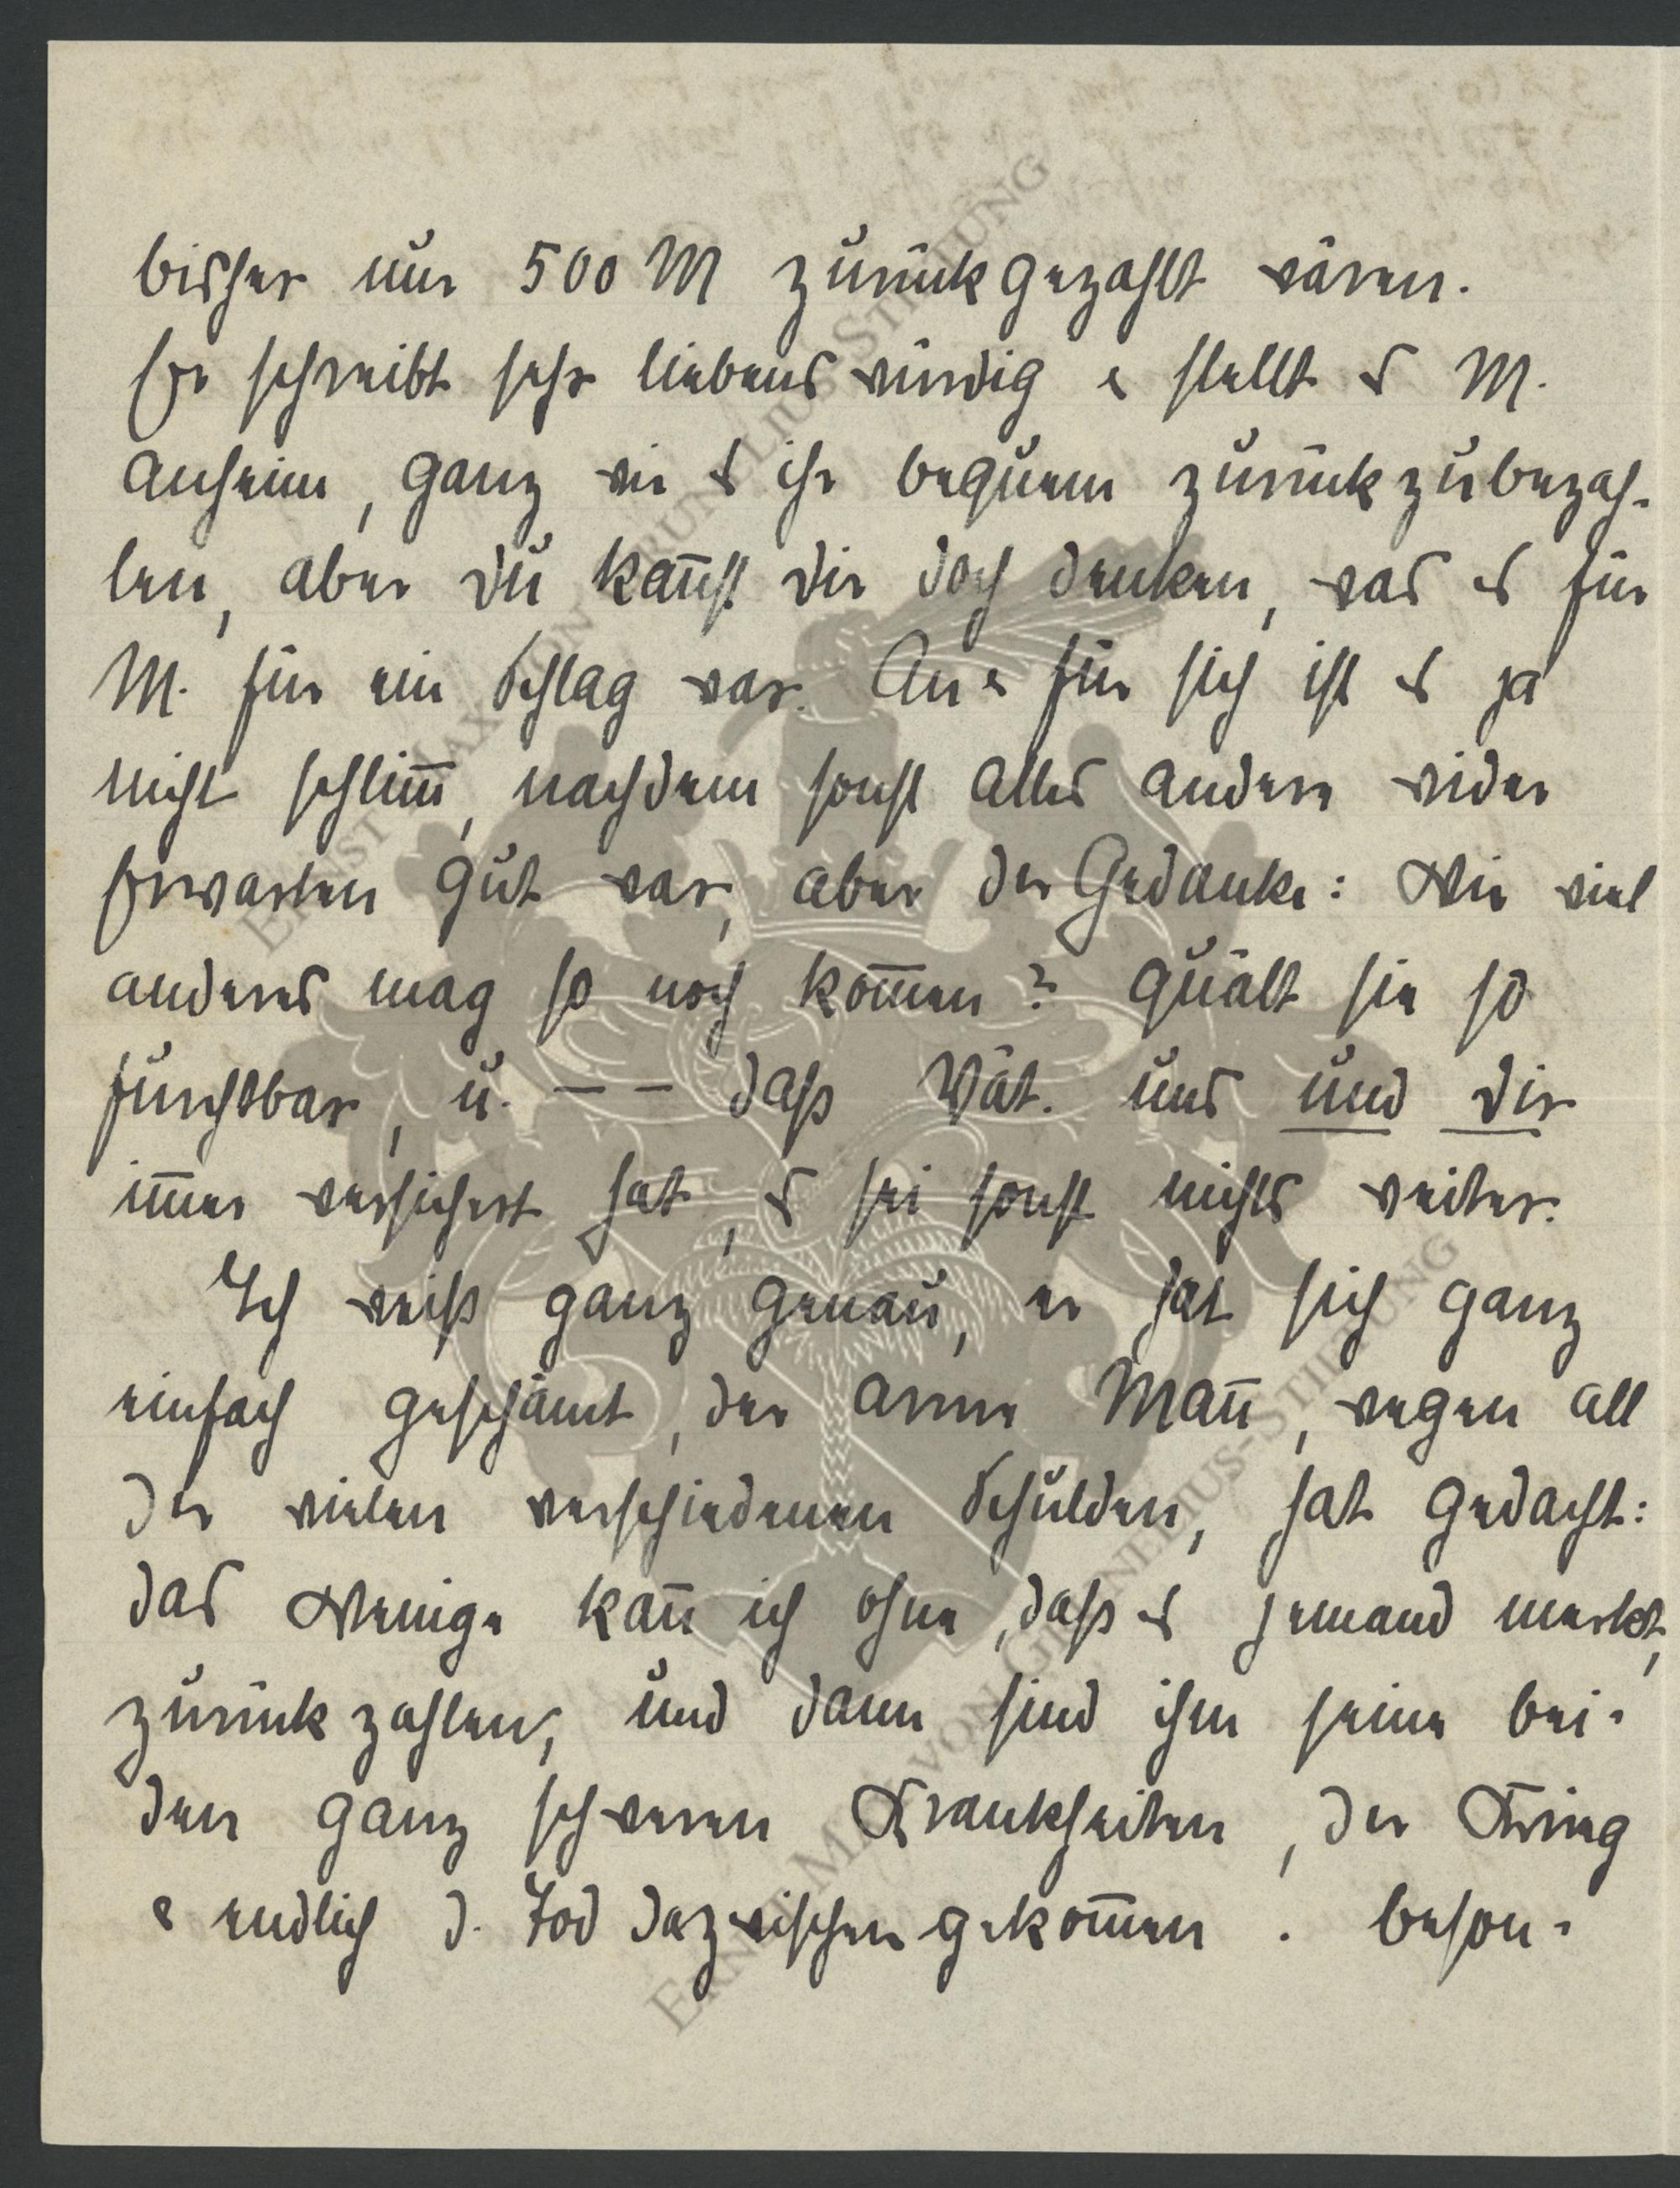 bisher nur 500 M zurückgezahlt wären.
Er schreibt sehr liebenswürdig & stellt es M.
anheim, ganz wie es ihr bequem zurückzubezah-
len, aber du kan̄st dir doch denken, was es für
M. für ein Schlag war. An & für sich ist es ja
nicht schlim̄, nachdem sonst alles andere wider
Erwarten gut war, aber der Gedanke: Wie viel
anderes mag so noch kom̄en? quält sie so
furchtbar, u. — — daß Vat. uns und dir
im̄er versichert hat, es sei sonst nichts weiter.
Ich weiß ganz genau, er hat sich ganz
einfach geschämt, der arme Man̄, wegen all
der vielen verschiedenen Schulden, hat gedacht:
das Wenige kan̄ ich ohne, daß es jemand merkt,
zurückzahlen, und dann sind ihm seine bei-
den ganz schweren Krankheiten, der Krieg
& endlich d. Tod dazwischen gekom̄en. beson-
ERNST MAX VON GRUNELIUS-STIFTUNG
ERNST MAX VON GRUNELIUS-STIFTUNG